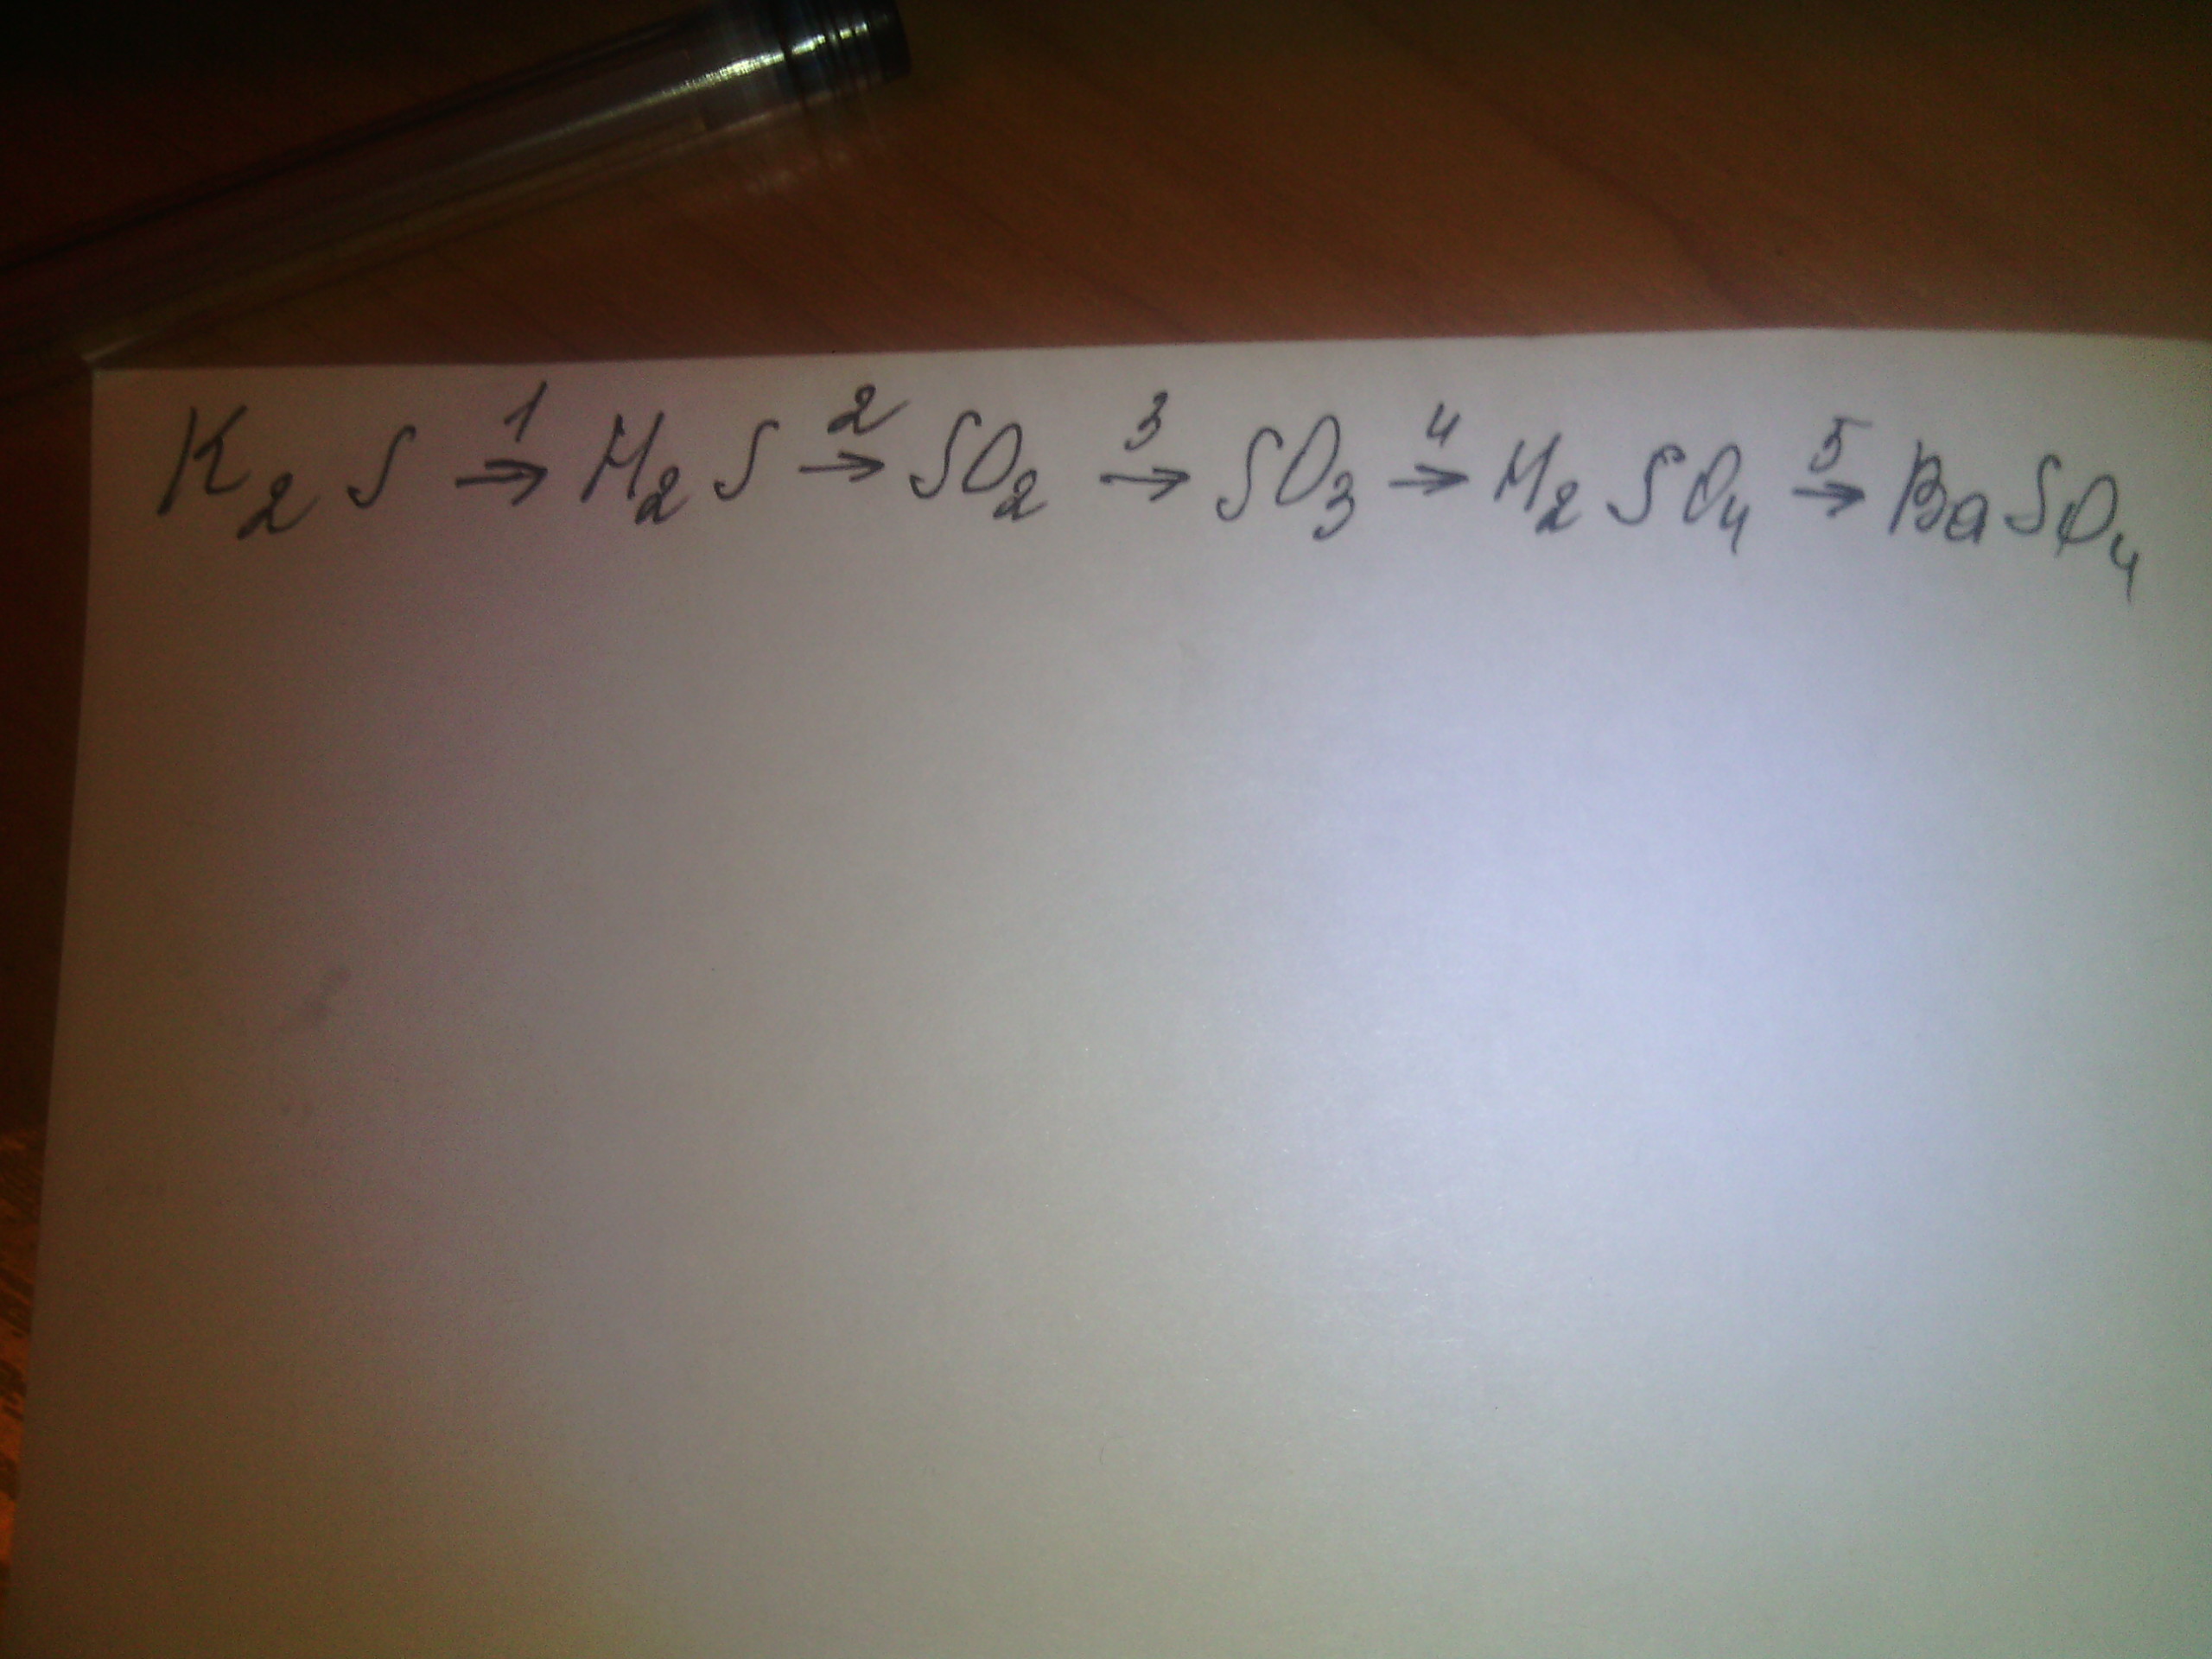 K₂S →¹ H₂S →² SO₂ →³ SO₃ →⁴ H₂SO₄ →⁵ BaSO₄